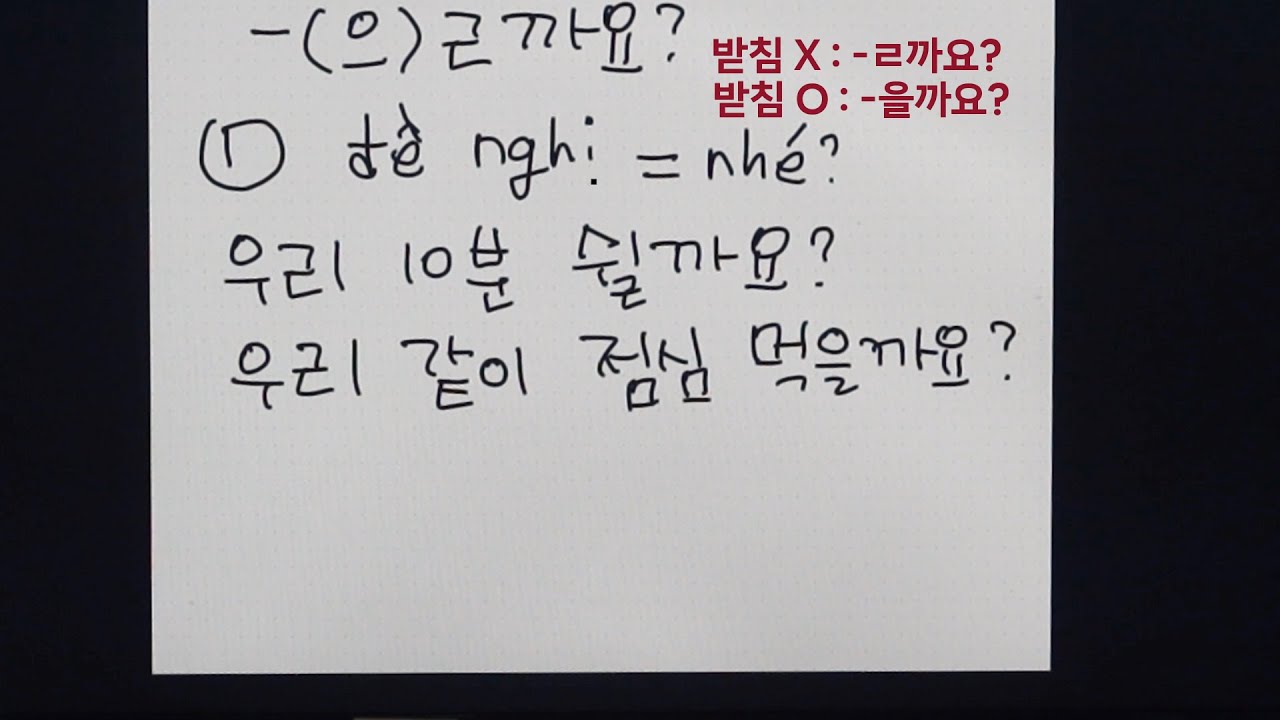 -(으)ㄹ까요?
받침 X : -ㄹ까요?
받침 O : -을까요?
① đề nghị = nhé?
우리 10분 쉴까요?
우리 같이 점심 먹을까요?